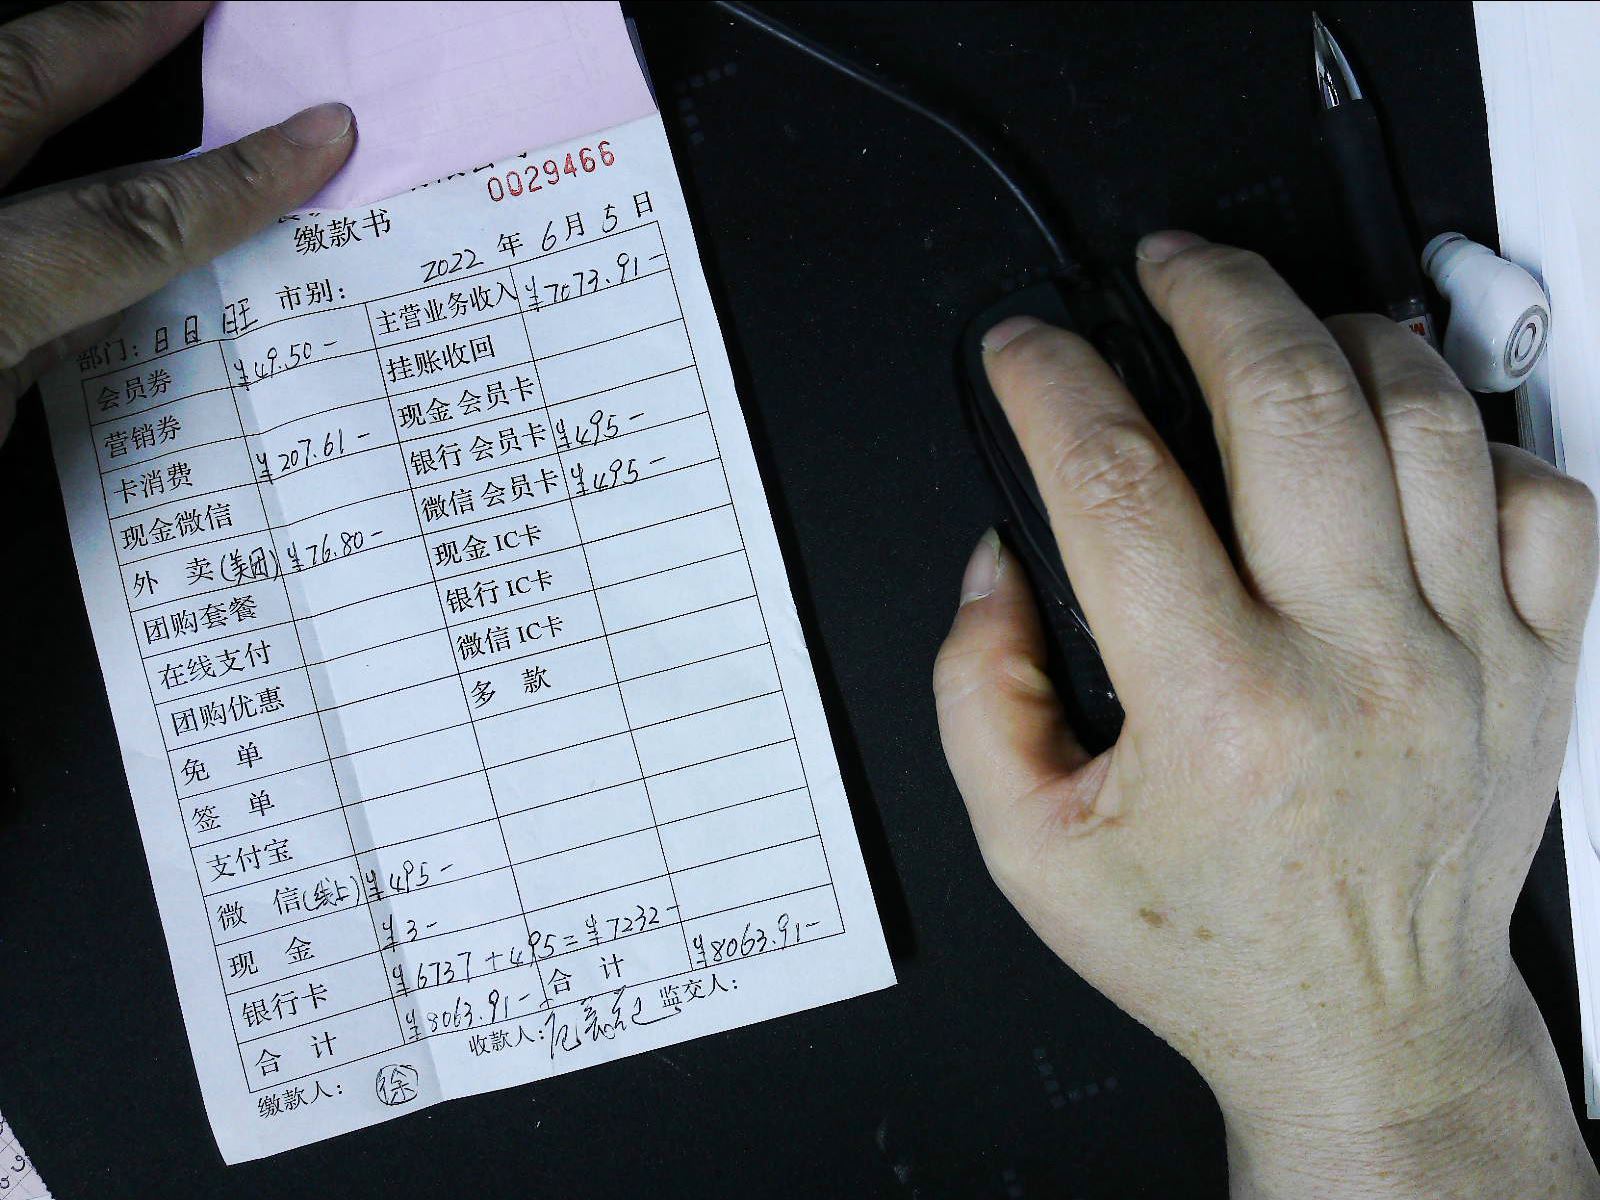 0029466
缴款书
2022 年 6 月 5 日
部门: 日日旺 市别:
会员券 ¥49.50- 主营业务收入 ¥7073.91-
营销券 挂账收回
卡消费 ¥207.61- 现金 会员卡
现金微信 银行 会员卡 ¥495-
外 卖(美团) ¥76.80- 微信 会员卡 ¥495-
团购套餐 现金 IC卡
在线支付 银行 IC卡
团购优惠 微信 IC卡
免 单 多 款
签 单
支付宝
微 信(线上) ¥495-
现 金 ¥3-
银行卡 ¥6737+495=¥7232-
合 计 ¥8063.91- 合 计 ¥8063.91-
缴款人: 徐 收款人: 监交人: